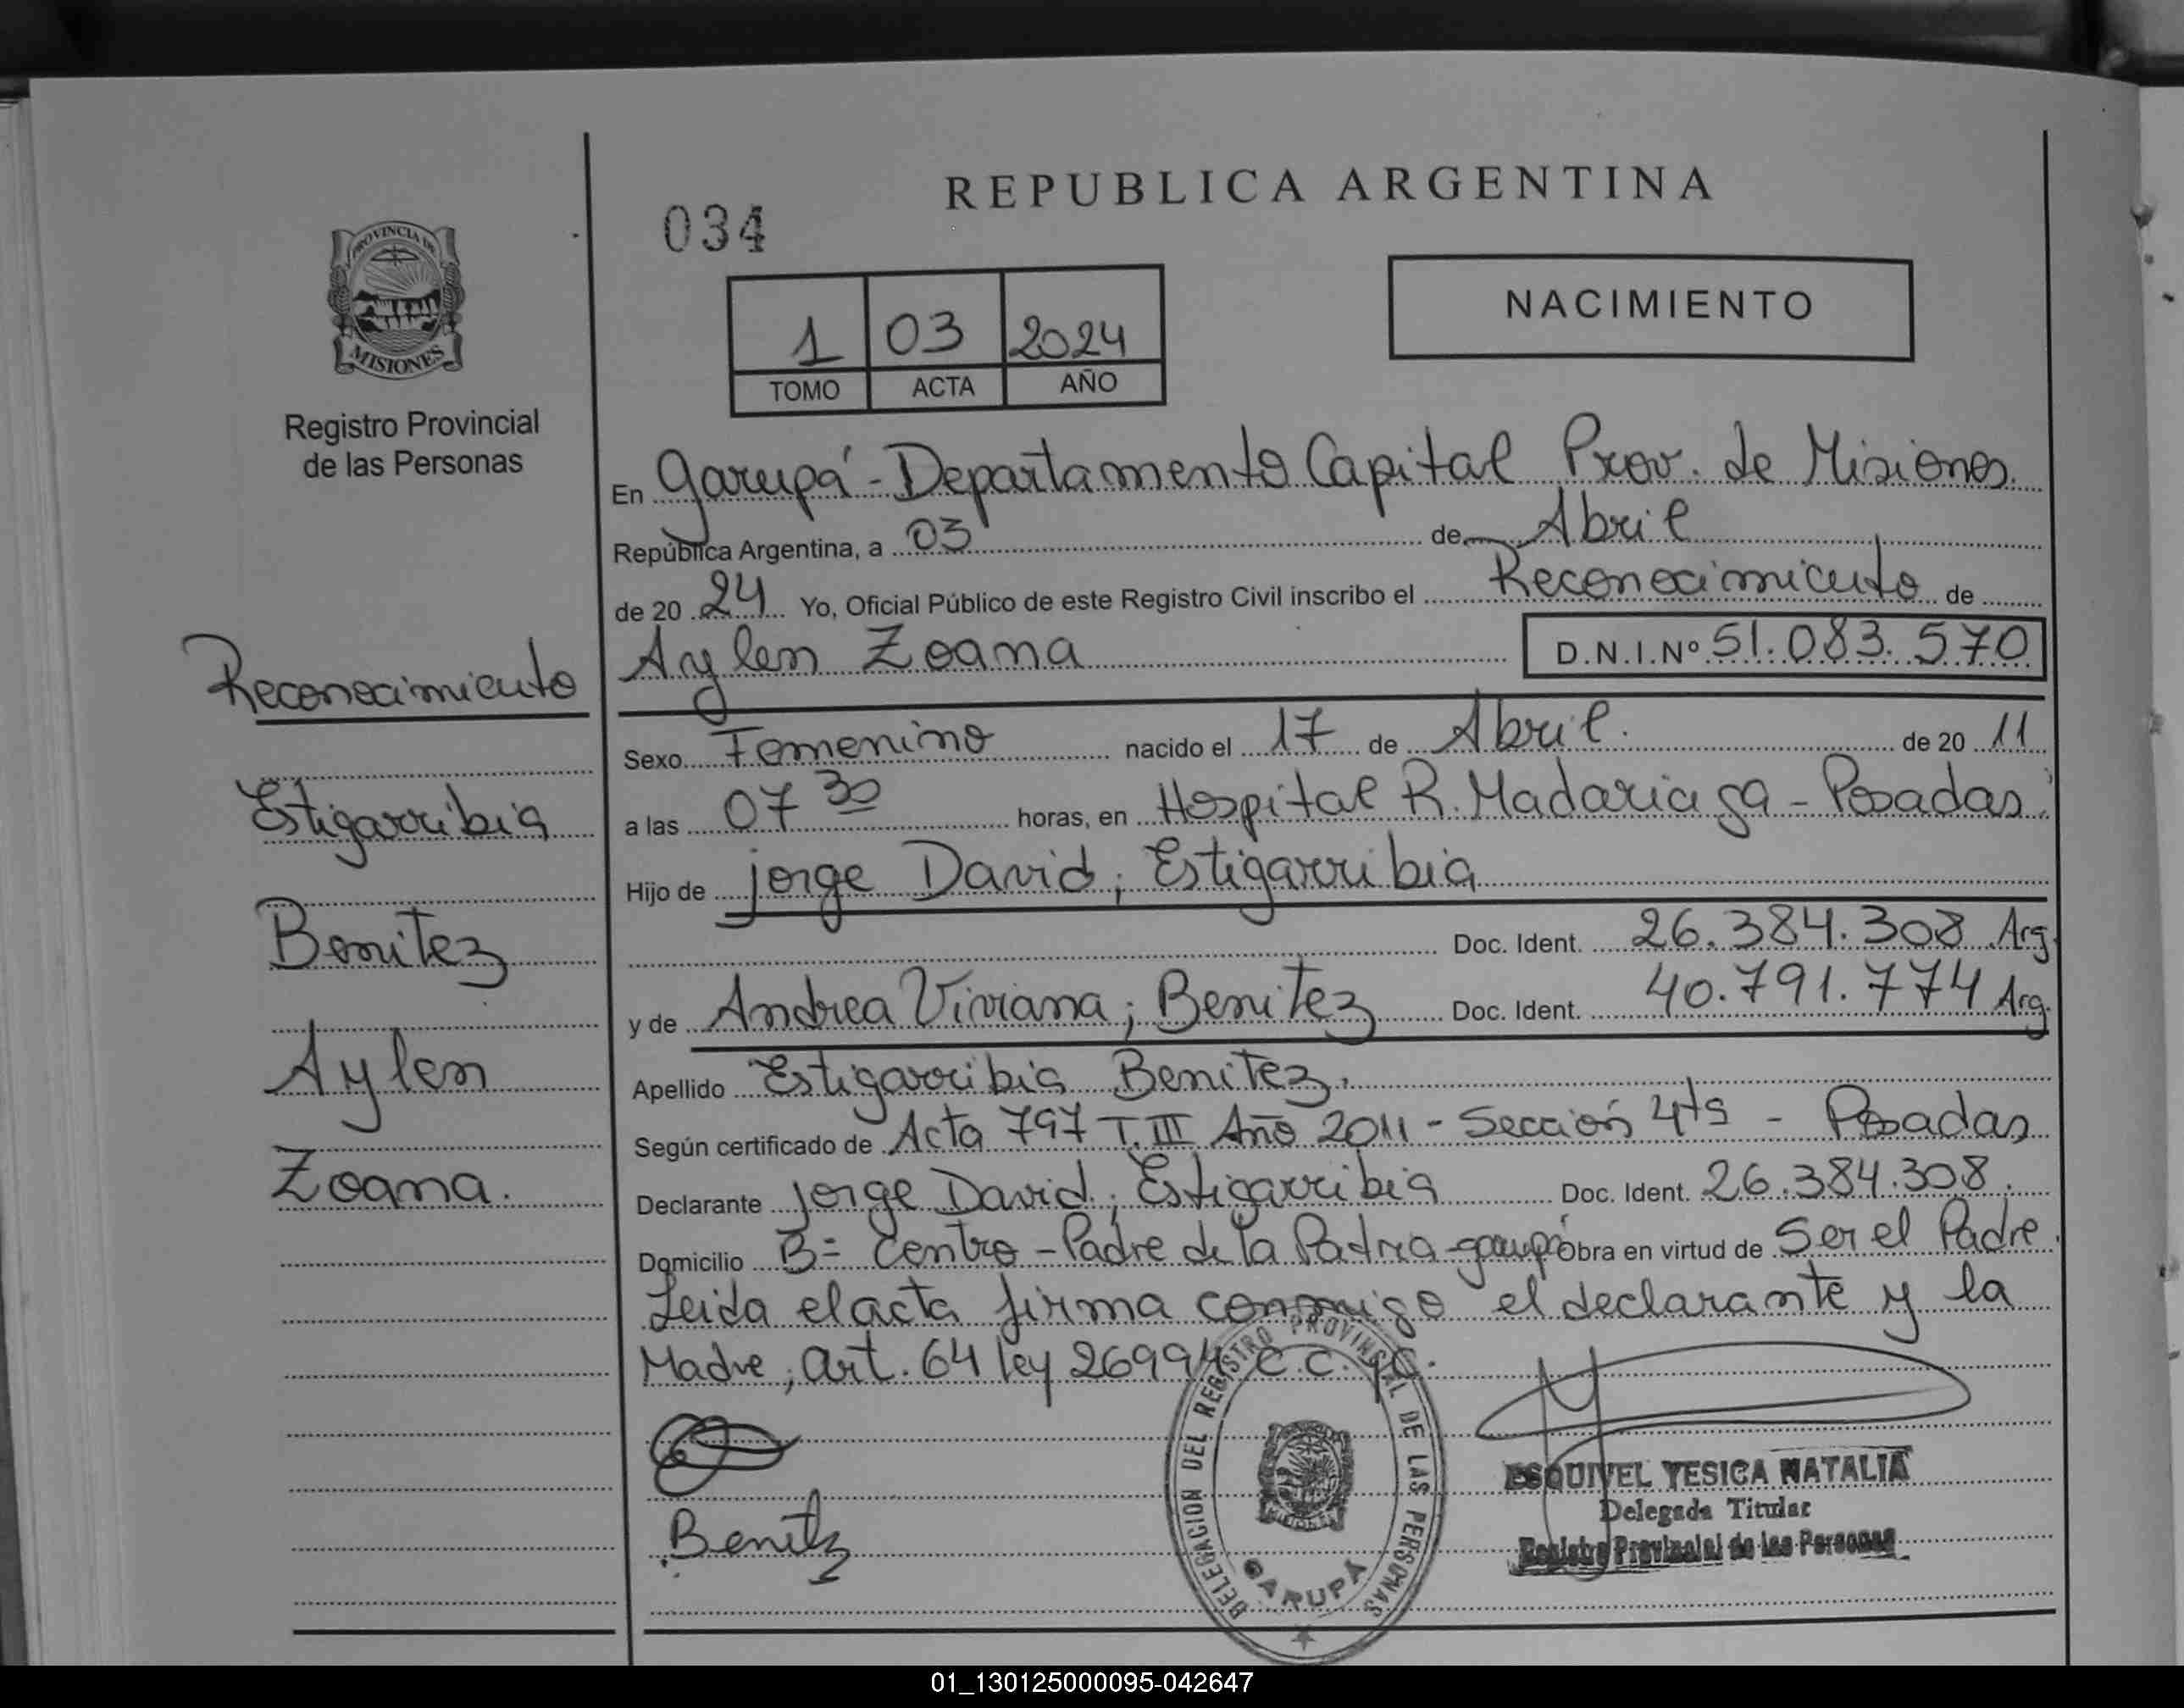 REPUBLICA ARGENTINA
034
PROVINCIA DE
MISIONES
Registro Provincial
de las Personas
1 03 2024
TOMO ACTA AÑO
NACIMIENTO
En Garupá - Departamento Capital Prov. de Misiones
República Argentina, a 03 de Abril
de 20 24 Yo, Oficial Público de este Registro Civil inscribo el Reconocimiento de
Aylen Zoana D.N.I.Nº 51.083.570
Sexo Femenino nacido el 17 de Abril. de 20 11
a las 07 30 horas, en Hospital R. Madariaga - Posadas
Hijo de Jorge David; Estigarribia
Doc. Ident. 26.384.308 Arg.
y de Andrea Viviana; Benitez Doc. Ident. 40.791.774 Arg.
Apellido Estigarribia Benitez.
Según certificado de Acta 797 T. III Año 2011 - Sección 4ta - Posadas
Declarante Jorge David; Estigarribia Doc. Ident. 26.384.308.
Domicilio B= Centro - Padre de la Patria - garupá Obra en virtud de Ser el Padre.
Leida el acta firma conmigo el declarante y la
Madre, art. 64 ley 26994 C.C. yC.
Benitz
Reconocimiento
Estigarribia
Benitez
Aylen
Zoana.
DELEGACION DEL REGISTRO PROVINCIAL DE LAS PERSONAS
GARUPÁ
ESQUIVEL YESICA NATALIA
Delegada Titular
Registro Provincial de las Personas
01_130125000095-042647